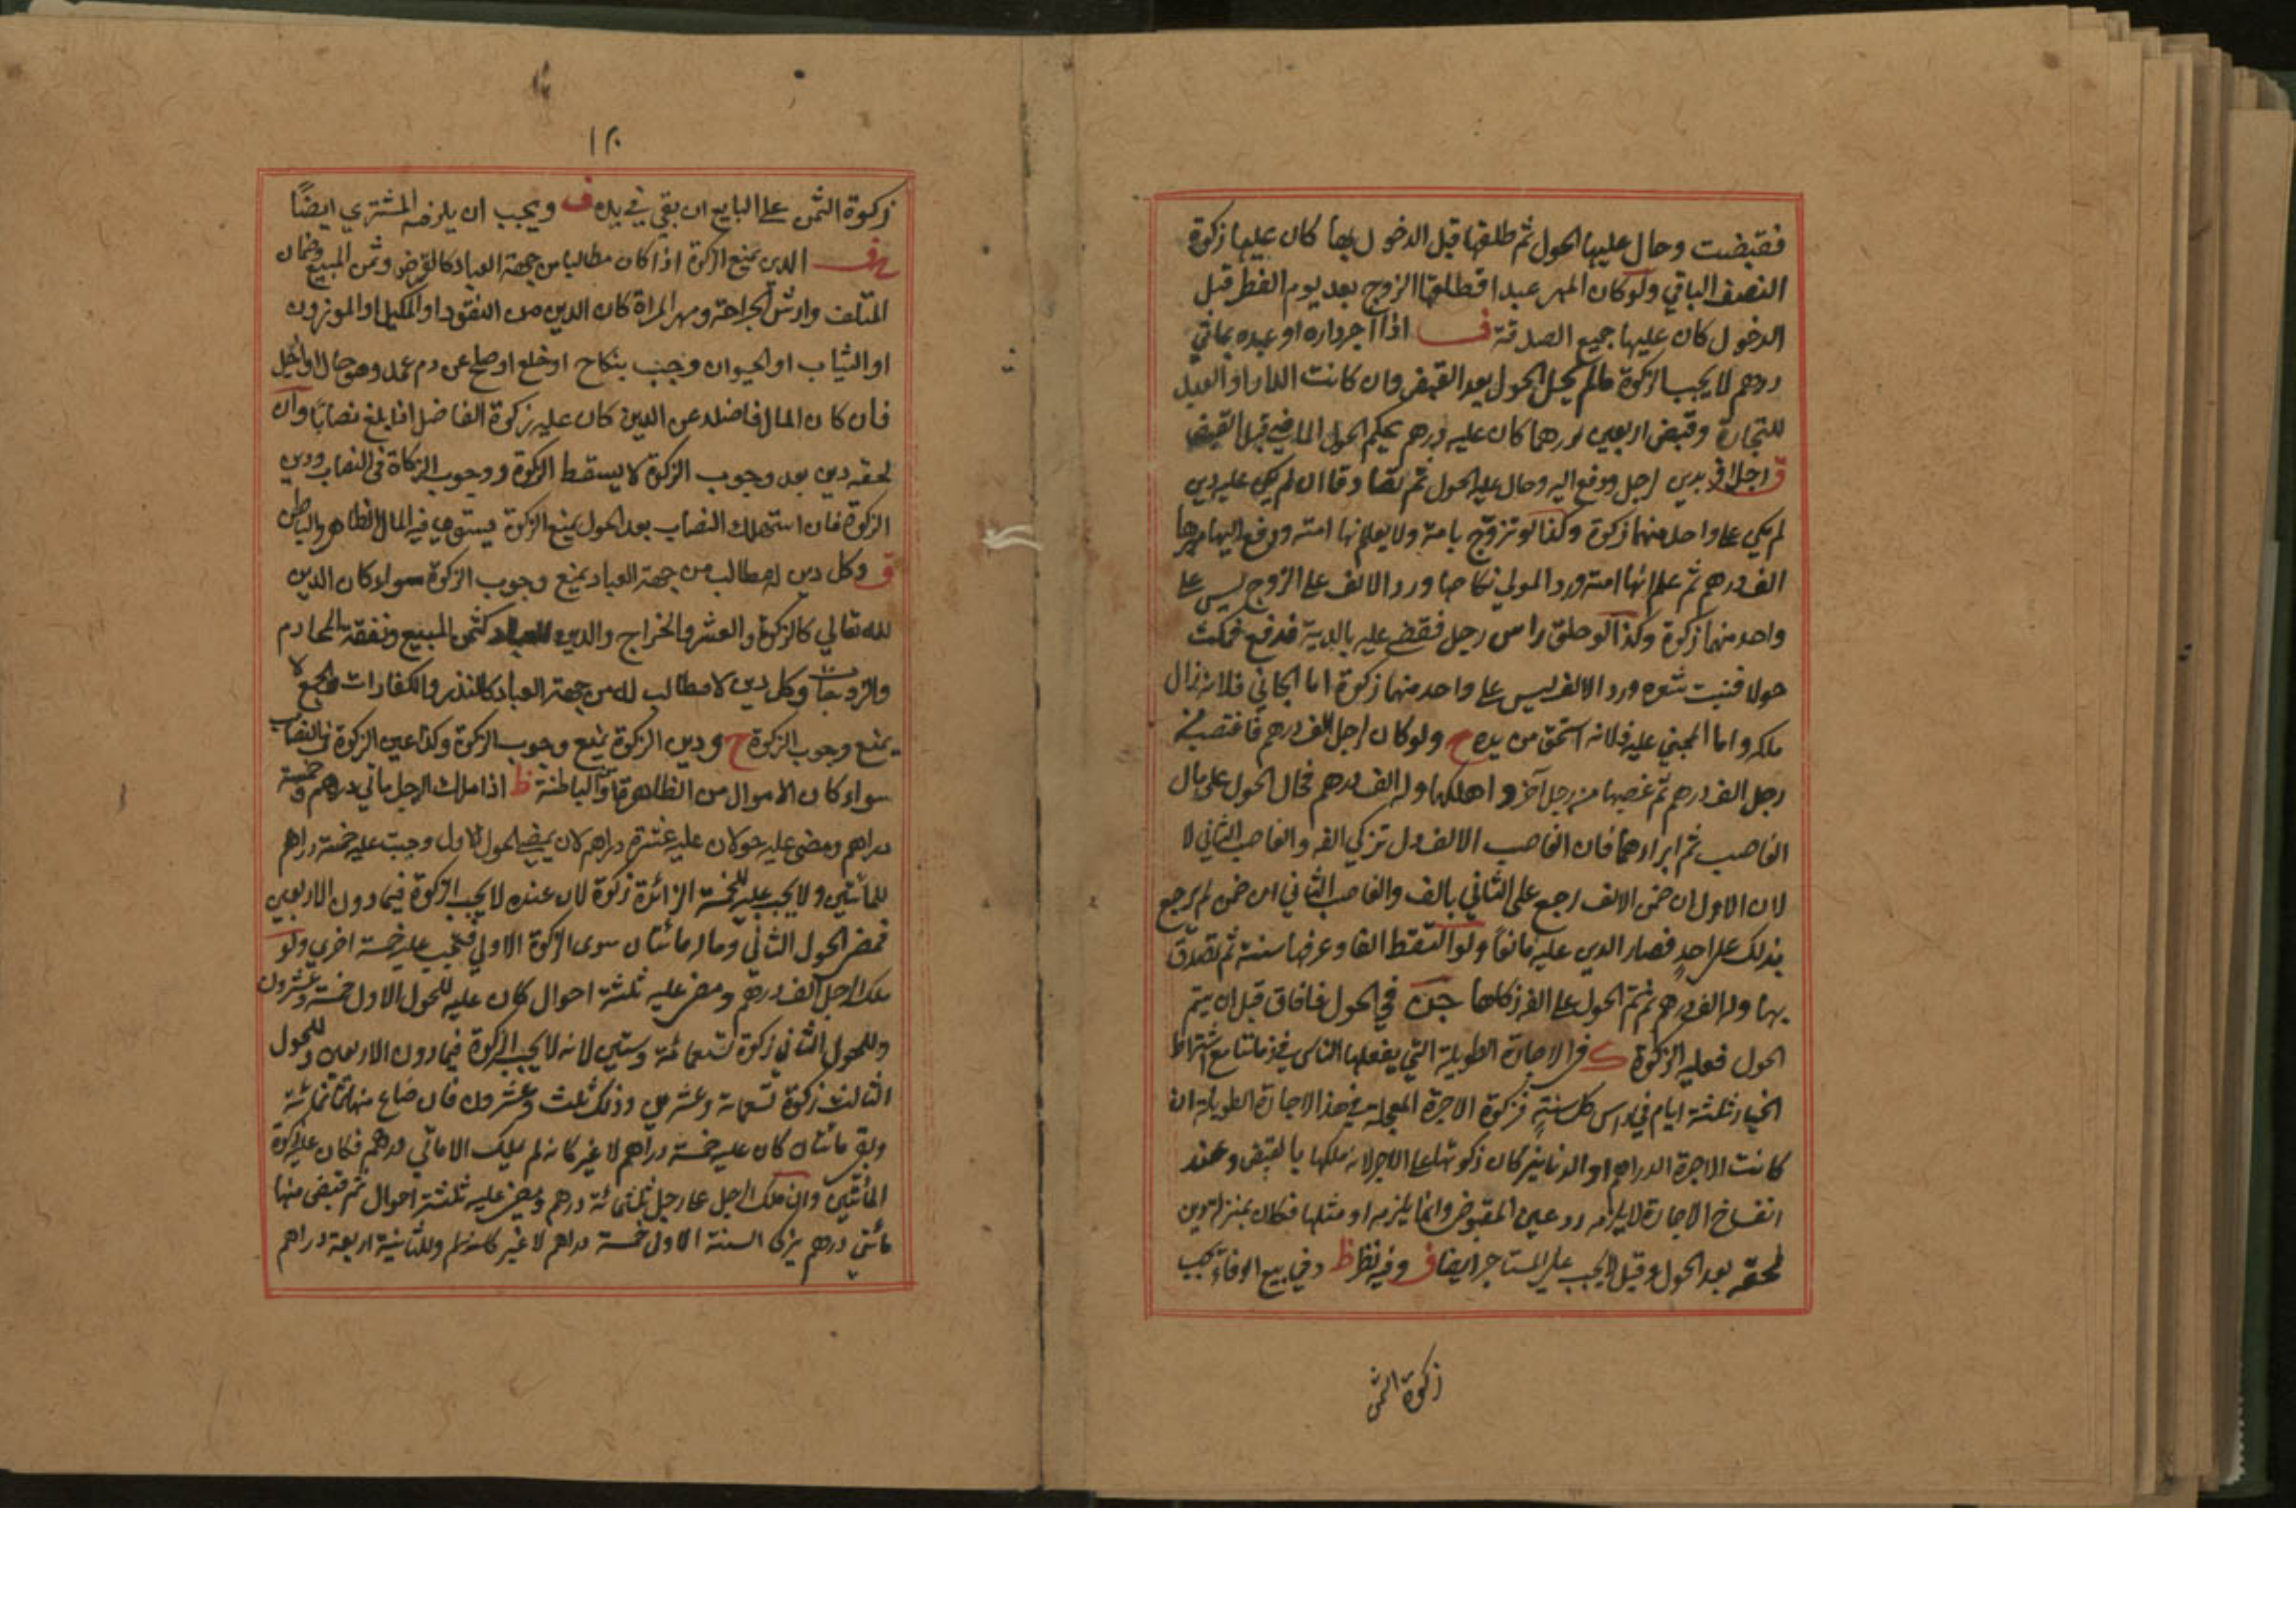 فقبضت وحال عليها الحول ثم طلقها قبل الدخول بها كان عليها زكوة
النصف الباقي ولو كان المهر عبدا فطلقها الزوج بعد يوم الفطر قبل
الدخول كان عليها جميع الصدقة ف اذا آجر داره او عبده بماتي
درهم لا يجب الزكوة مالم يحل الحول بعد القبض وان كانت الدار او العبد
للتجارة وقبض اربعين درهما كان عليه درهم بحكم الحول الماضي قبل القبض
ق رجل اقر بدين لرجل ودفع اليه وحال عليه الحول ثم تصادقا ان لم يكن عليه دين
لم يكن على واحد منهما زكوة وكذا لو تزوج بامة ولا يعلم انها امته ودفع اليها مهرها
الف درهم ثم علم انها امته ورد المولى نكاحها ورد الالف على الزوج ليس على
واحد منهما زكوة وكذا لو حلق راس رجل فقضى عليه بالدية فدفع فمكث
حولا فنبت شعره ورد الالف ليس على واحد منهما زكوة اما الجاني فلانه زال
ملكه واما المجني عليه فلانه استحق من يده ح ولو كان لرجل الف درهم فاغتصب منه
رجل الف درهم ثم غصبها من رجل آخر واهلكها وله الف درهم فحال الحول على مال
الغاصب ثم ابرأهما فان الغاصب الاول تزكي الفه والغاصب الثاني لا
لان الاول ان ضمن الالف رجع على الثاني بالف والغاصب الثاني ان ضمن لم يرجع
بذلك على احد فصار الدين عليه مانعا ولو التقط الفا وعرفها سنة ثم تصدق
بها وله الف درهم ثم تم الحول على الفه زكاها جن في الحول فافاق قبل ان يتم
الحول فعليه الزكوة ك في الاجارة الطويلة التي يفعلها الناس في زماننا مع اشتراط
الخيار ثلثة ايام في راس كل سنة فزكوة الاجرة المعجلة في هذا الاجارة الطويلة ان
كانت الاجرة الدراهم او الدنانير كان زكوتها على الاجر لانه ملكها بالقبض وعند
انفساخ الاجارة لا يلزمه رد عين المقبوض وانما يلزمه او مثلها فكان بمنزلة دين
لحقه بعد الحول وقيل يجب على المستاجر ايضا ف وفيه نظر ظ وفي بيع الوفاء تجب
زكوة الثمن
١٢٠
زكوة الثمن على البايع ان بقي في يده ف ويجب ان يلزمه المشتري ايضا
الدين يمنع الزكوة اذا كان مطالبا من جهة العباد كالقرض وثمن المبيع وضمان
المتلف وارش الجراحة ومهر المراة كان الدين من النقود او المكيل او الموزون
او الثياب او الحيوان وجب بنكاح او خلع او صلح عن دم عمد وهو حال او مؤجل
فان كان المال فاضلا عن الدين كان عليه زكوة الفاضل اذا بلغ نصابا وان
لحقه دين بعد وجوب الزكوة لا يسقط الزكوة ووجوب الزكاة في النصاب ودين
الزكوة فان استهلك النصاب بعد الحول يمنع الزكوة يستوي فيه المال الظاهر والباطن
ق وكل دين له مطالب من جهة العباد يمنع وجوب الزكوة سواء كان الدين
لله تعالى كالزكوة والعشر والخراج والدين للعباد كثمن المبيع ونفقة المحارم
والزوجات وكل دين لا مطالب له من جهة العباد كالنذر والكفارات والحج لا
يمنع وجوب الزكوة ح ودين الزكوة يمنع وجوب الزكوة وكذا عين الزكوة في النصاب
سواء كان الاموال من الظاهرة او الباطنة ظ اذا ملك الرجل ماتي درهم وخمسة
دراهم ومضى عليه حولان عليه عشرة دراهم لان بمضي الحول الاول وجبت عليه خمسة دراهم
للمأتين ولا يجب عليه للخمسة الزائدة زكوة لان عنده لا يجب الزكوة فيما دون الاربعين
فمضى الحول الثاني وماله مائتان سوى الزكوة الاولى فتجب عليه خمسة اخرى ولو
ملك الرجل الف درهم ومضى عليه ثلثة احوال كان عليه للحول الاول خمسة وعشرون
وللحول الثاني زكوة تسعمائة وستين لانه لا يجب الزكوة فيما دون الاربعين وللحول
الثالث زكوة تسعمائة وعشرين وذلك ثلث وعشرون فان ضاع منها ثمانمائة
وبقى مائتان كان عليه خمسة دراهم لا غير كانه لم يملك الا ماتي درهم فكان عليه زكوة
المأتين وان ملك الرجل على رجل ثلثمائة درهم ومضى عليه ثلثة احوال ثم قبض منها
مأتي درهم يزكي السنة الاولى خمسة دراهم لا غير وللثانية اربعة دراهم